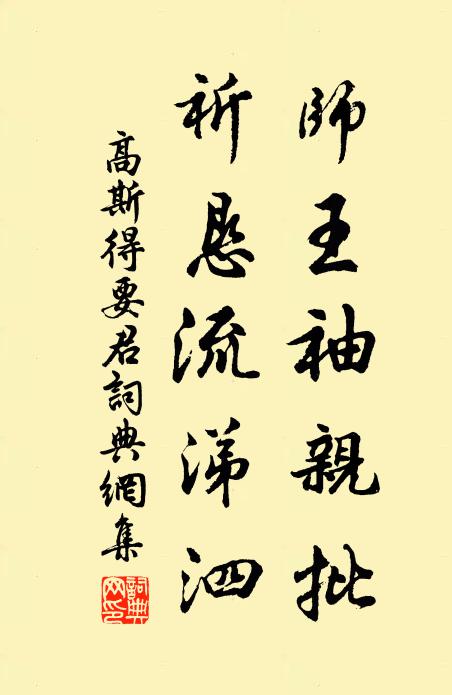 師王袖親批
祈恳流涕泗
高斯得要君詞典網集
詞典网印